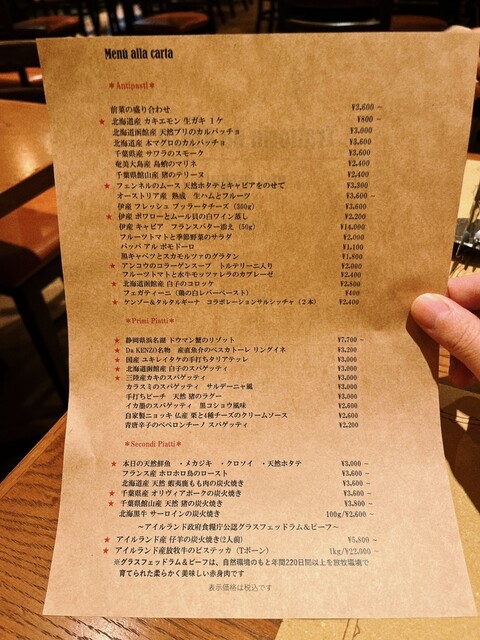 Menù alla carta
*Antipasti*
前菜の盛り合わせ ¥3,600 ~
★ 北海道産 カキエモン 生ガキ 1ケ ¥800 ~
北海道函館産 天然ブリのカルパッチョ ¥3,000
北海道産 本マグロのカルパッチョ ¥3,600
千葉県産 サワラのスモーク ¥3,600
奄美大島産 島蛸のマリネ ¥2,400
千葉県館山産 猪のテリーヌ ¥2,400
★ フェンネルのムース 天然ホタテとキャビアをのせて ¥3,300
オーストリア産 熟成 生ハムとフルーツ ¥3,600 ~
伊産 フレッシュ ブッラータチーズ (300g) ¥3,600
★ 伊産 ポワローとムール貝の白ワイン蒸し ¥2,200
伊産 キャビア フランスバター添え (30g) ¥14,000
フルーツトマトと季節野菜のサラダ ¥2,000
パッパ アル ポモドーロ ¥1,100
黒キャベツとスカモルツァのグラタン ¥1,800
★ アンコウのコラーゲンスープ トルテリーニ入り ¥2,000
フルーツトマトと水牛モッツァレラのカプレーゼ ¥2,400
★ 北海道函館産 白子のコロッケ ¥2,800
フェガティーニ (鶏の白レバーペースト) ¥400
★ ケンゾー&タルタルギーナ コラボレーションサルシッチャ (2本) ¥2,400
*Primi Piatti*
★ 静岡県浜名湖 ドウマン蟹のリゾット ¥7,700 ~
★ Da KENZO名物 産直魚介のペスカトーレ リングイネ ¥3,200
★ 国産 ユキレイタケの手打ちタリアテッレ ¥3,000
★ 北海道函館産 白子のスパゲッティ ¥3,000
★ 三陸産カキのスパゲッティ ¥3,000
カラスミのスパゲッティ サルデーニャ風 ¥3,000
手打ちピーチ 天然 猪のラグー ¥3,000
イカ墨のスパゲッティ 黒コショウ風味 ¥2,600
自家製ニョッキ 仏産 栗と4種チーズのクリームソース ¥2,600
青唐辛子のペペロンチーノ スパゲッティ ¥2,200
*Secondi Piatti*
★ 本日の天然鮮魚 ・メカジキ ・クロソイ ・天然ホタテ ¥3,000 ~
フランス産 ホロホロ鳥のロースト ¥3,600 ~
北海道産 天然 蝦夷鹿もも肉の炭火焼き ¥3,600 ~
★ 千葉県産 オリヴィアポークの炭火焼き ¥3,600 ~
★ 千葉県館山産 天然 猪の炭火焼き ¥3,800 ~
北海黒牛 サーロインの炭火焼き 100g/¥2,600 ~
~アイルランド政府食糧庁公認グラスフェッドラム&ビーフ~
★ アイルランド産 仔羊の炭火焼き(2人前) ¥5,800 ~
★ アイルランド産放牧牛のビステッカ (Tボーン) 1kg/¥22,000 ~
※グラスフェッドラム&ビーフは、自然環境のもと年間220日間以上を放牧環境で
育てられた柔らかく美味しい赤身肉です
表示価格は税込です